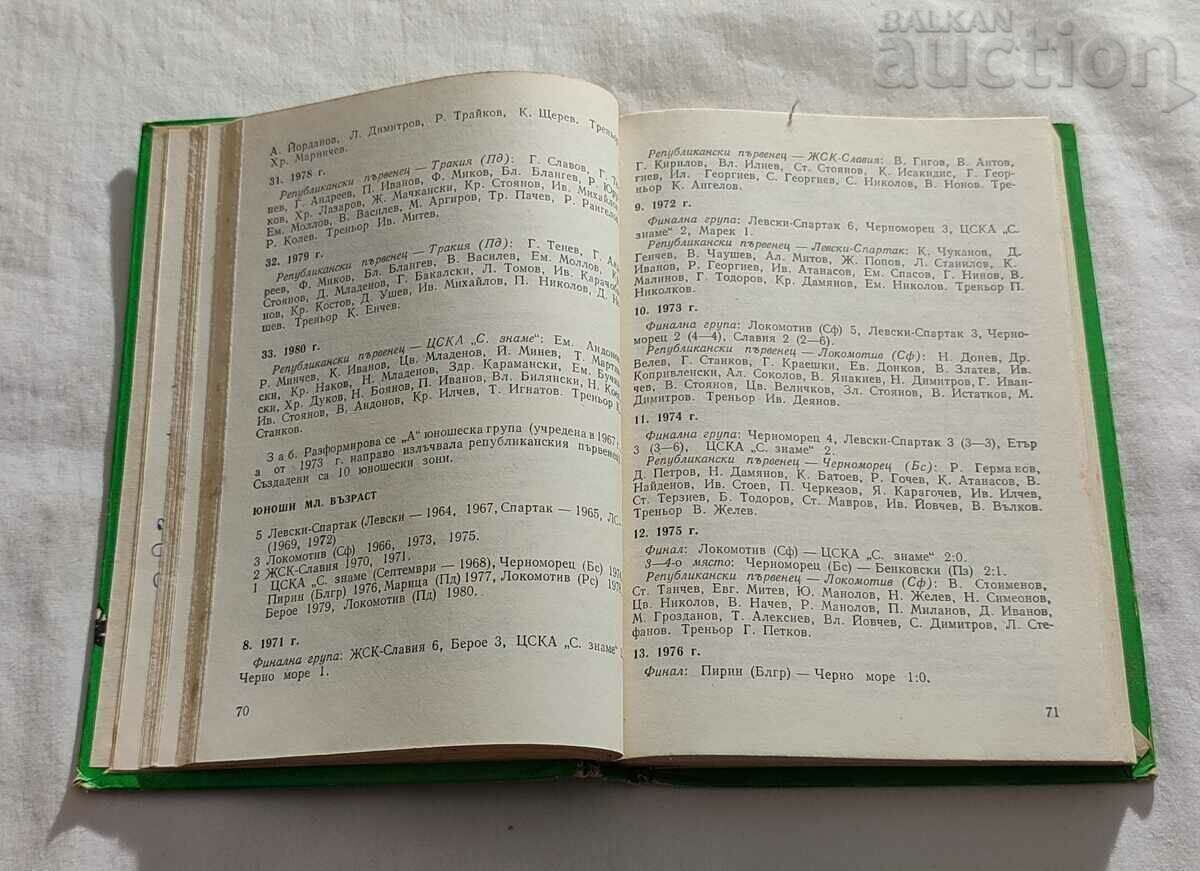 BALKAN
auction
А. Йорданов, Л. Димитров, Р. Трайков, К. Щерев. Треньор
Хр. Маринчев.
31. 1978 г.
Републикански първенец — Тракия (Пд): Г. Славов, Г.
нев, Г. Андреев, П. Иванов, Ф. Миков, Бл. Блангев, Р.
ков, Хр. Лазаров, Ж. Мачкански, Кр. Стоянов, Ив. Михайлов,
Ем. Моллов, В. Василев, М. Аргиров, Тр. Пачев, Р. Рангелов,
Р. Колев. Треньор Ив. Митев.
32. 1979 г.
Републикански първенец — Тракия (Пд): Г. Тенев, Г.
реев, Ф. Миков, Бл. Блангев, В. Василев, Ем. Моллов,
Стоянов, Д. Младенов, Г. Бакалски, Л. Томов, Ив.
нов, Кр. Костов, Д. Ушев, Ив. Михайлов, П. Николов, Д.
шев. Треньор К. Енчев.
33. 1980 г.
Републикански първенец — ЦСКА „С. знаме“: Ем. Андонов,
Р. Минчев, К. Иванов, Цв. Младенов, Й. Минев, Т.
ски, Кр. Наков, Н. Младенов, Здр. Карамански, Ем.
ски, Хр. Дуков, Н. Боянов, П. Иванов, Вл. Билянски, Н.
Ив. Стоянов, В. Андонов, Кр. Илчев, Т. Игнатов. Треньор
Станков.
Заб. Разформирова се „А“ юношеска група (учредена в 1967 г.
а от 1973 г. направо излъчвала републиканския първенец)
Създадени са 10 юношески зони.
ЮНОШИ МЛ. ВЪЗРАСТ
5 Левски-Спартак (Левски — 1964, 1967, Спартак — 1965,
(1969, 1972)
3 Локомотив (Сф) 1966, 1973, 1975.
2 ЖСК-Славия 1970, 1971.
1 ЦСКА „С. знаме (Септември — 1968), Черноморец (Бс)
Пирин (Блгр) 1976, Марица (Пд) 1977, Локомотив (Рс)
Берое 1979, Локомотив (Пд) 1980.
8. 1971 г.
Финална група: ЖСК-Славия 6, Берое 3, ЦСКА „С. знаме“
Черно море 1.
70
Републикански първенец — ЖСК-Славия: В. Гигов, В. Антов,
Г. Кирилов, Вл. Илиев, Ст. Стоянов, К. Исакидис, Г. Геор-
гиев, Ил. Георгиев, С. Георгиев, С. Николов, В. Нонов. Тре-
ньор К. Ангелов.
9. 1972 г.
Финална група: Левски-Спартак 6, Черноморец 3, ЦСКА „С.
знаме“ 2, Марек 1.
Републикански първенец — Левски-Спартак: К. Чуканов, Д.
Генчев, В. Чаушев, Ал. Митов, Ж. Попов, Л. Станилов, К.
Иванов, Р. Георгиев, Ив. Атанасов, Ем. Спасов, Г. Нинов, В.
Малинов, Г. Тодоров, Кр. Дамянов, Ем. Николов. Треньор П.
Николков.
10. 1973 г.
Финална група: Локомотив (Сф) 5, Левски-Спартак 3, Черно-
морец 2 (4—4), Славия 2 (2—6).
Републикански първенец — Локомотив (Сф): Н. Донев, Др.
Велев, Г. Станков, Г. Краешки, Ев. Донков, В. Златев, Ив.
Копривленски, Ал. Соколов, В. Янакиев, Н. Димитров, Г. Иван-
чев, В. Стоянов, Цв. Величков, Зл. Стоянов, В. Истатков, М.
Димитров. Треньор Ив. Деянов.
11. 1974 г.
Финална група: Черноморец 4, Левски-Спартак 3 (3—3), Етър
3 (3—6), ЦСКА „С. знаме“ 2.
Републикански първенец — Черноморец (Бс): Р. Германов,
Д. Петров, Н. Дамянов, К. Батоев, Р. Гочев, К. Атанасов, В.
Найденов, Ив. Стоев, П. Черкезов, Я. Карагочев, Ив. Илчев,
Ст. Терзиев, Б. Тодоров, Ст. Мавров, Ив. Йовчев, В. Вълков.
Треньор В. Желев.
12. 1975 г.
Финал: Локомотив (Сф) — ЦСКА „С. знаме“ 2:0.
3—4-о място: Черноморец (Бс) — Бенковски (Пз) 2:1.
Републикански първенец — Локомотив (Сф): В. Стоименов,
Ст. Танчев, Евг. Митев, Ю. Манолов, Н. Желев, Н. Симеонов,
Цв. Николов, В. Начев, Р. Манолов, П. Миланов, Д. Иванов,
М. Грозданов, Т. Алексиев, Вл. Йовчев, С. Димитров, Л. Сте-
фанов. Треньор Г. Петков.
13. 1976 г.
Финал: Пирин (Блгр) — Черно море 1:0.
71